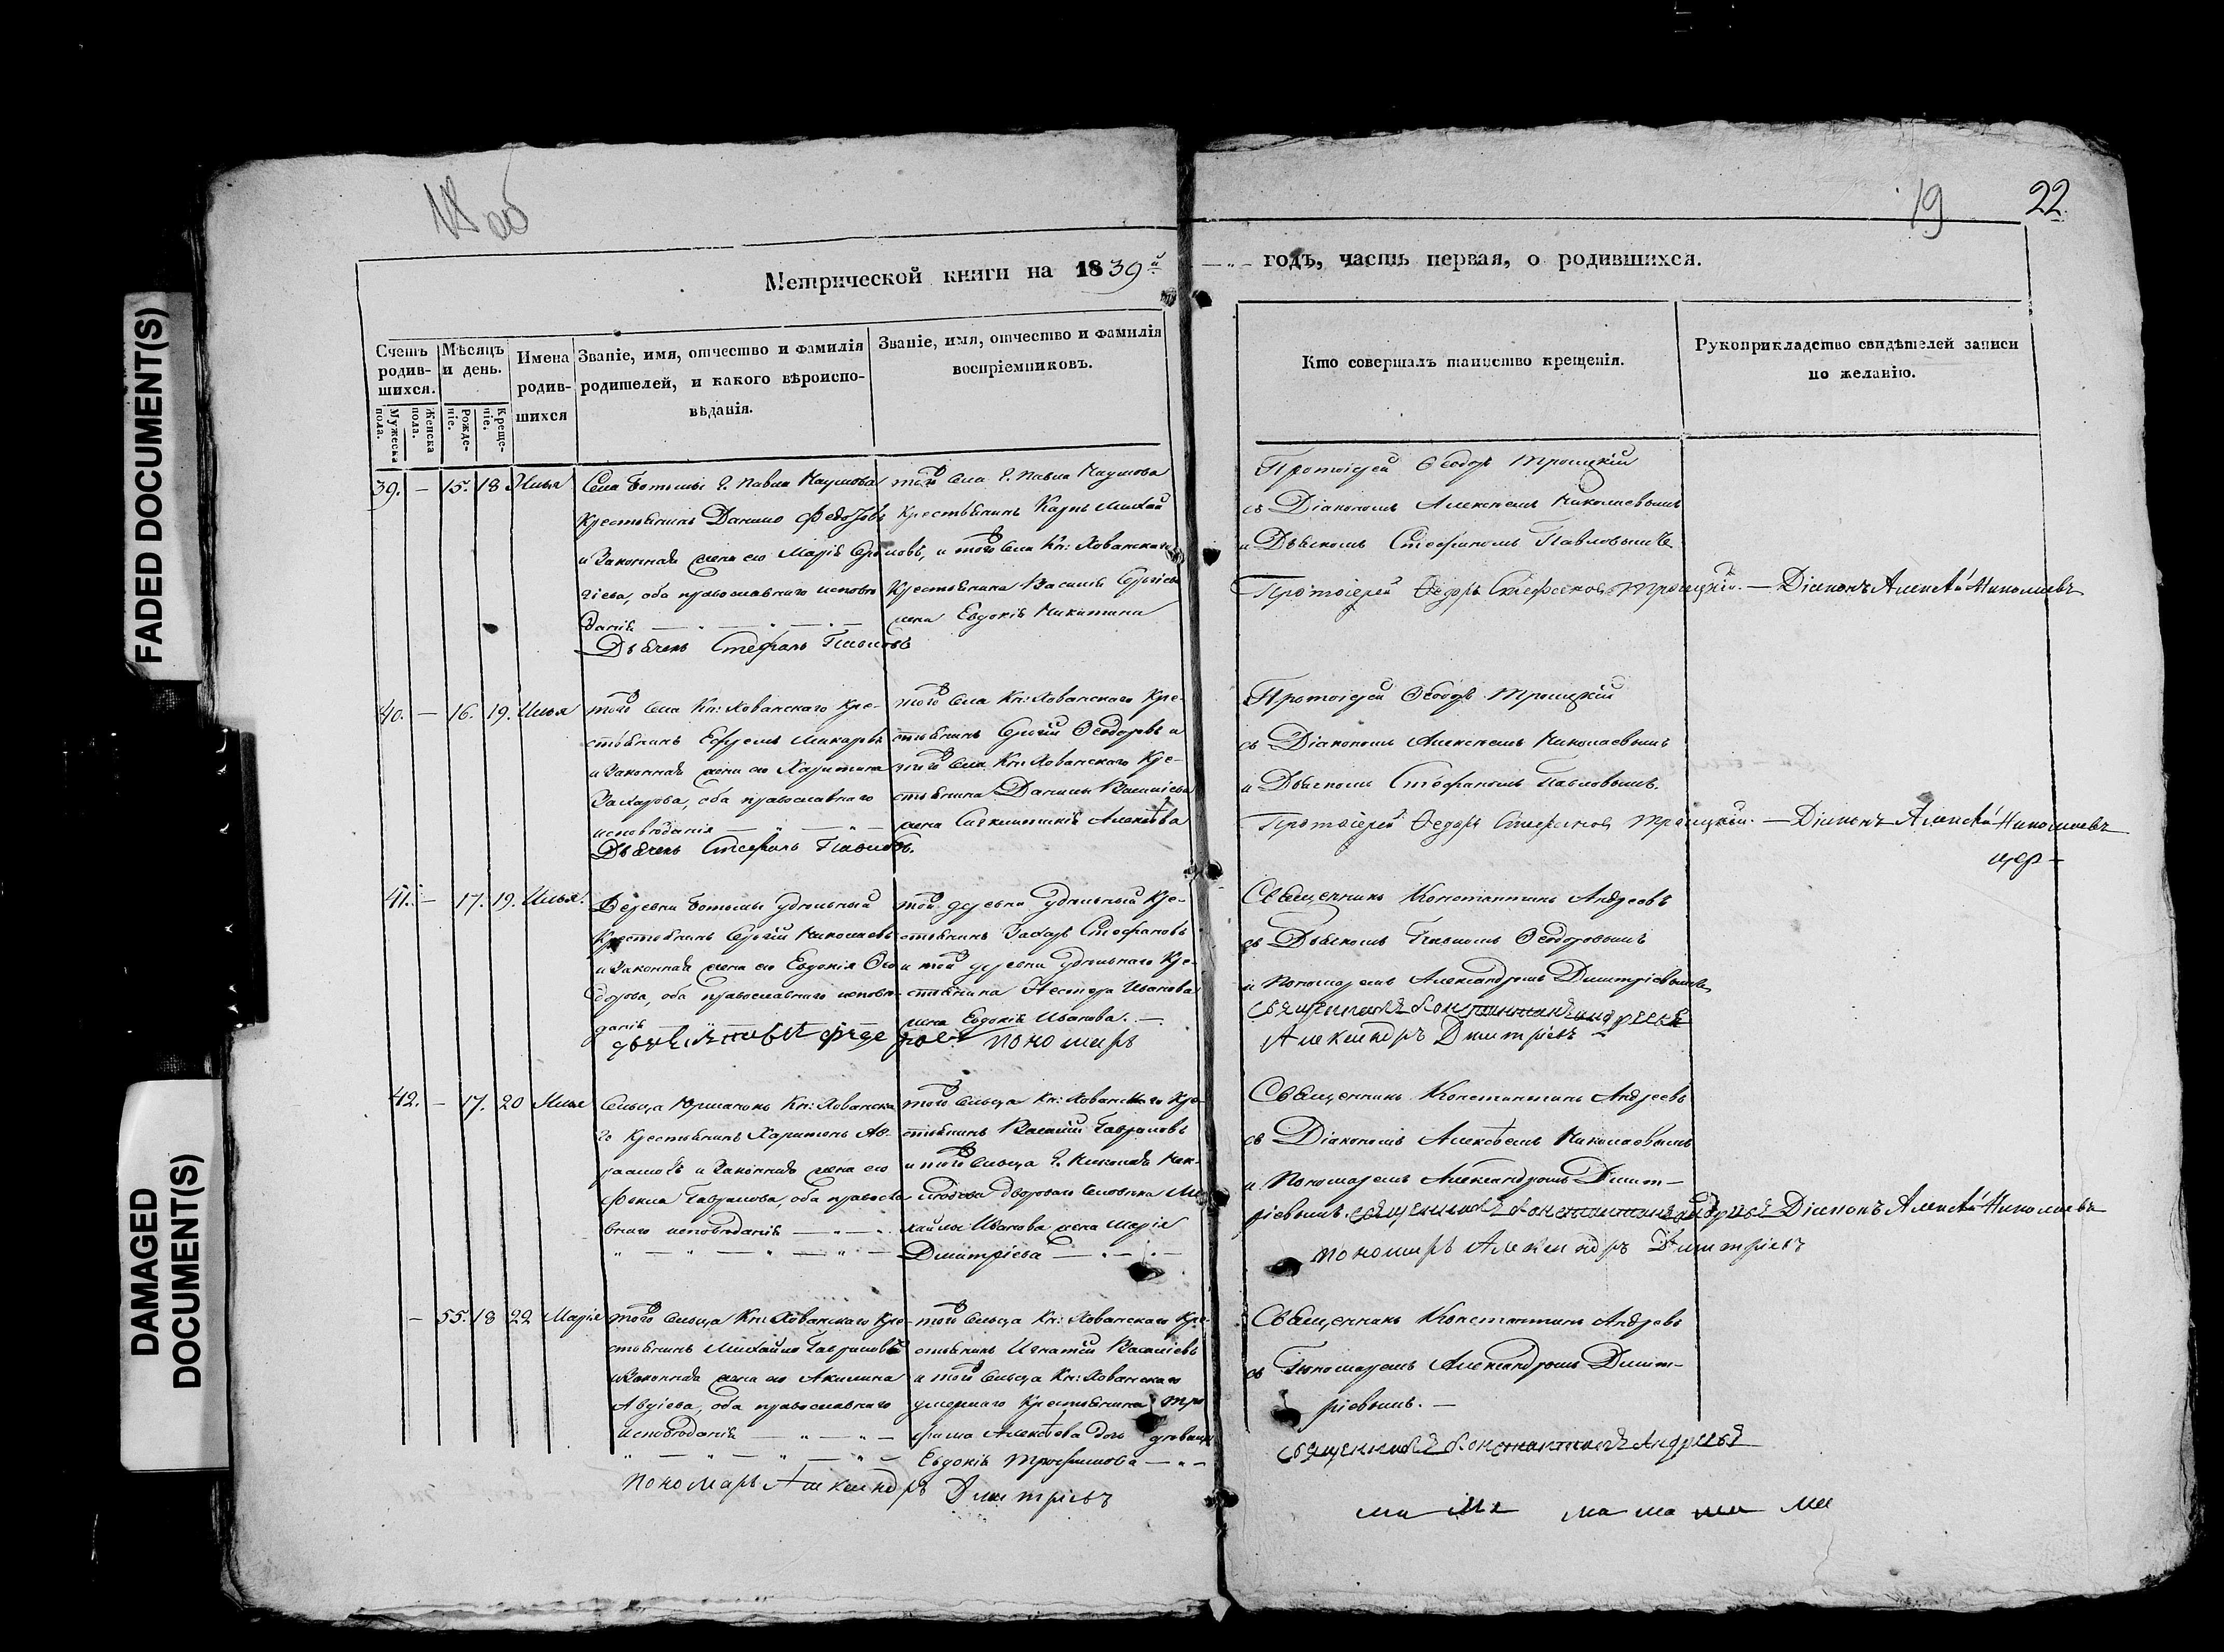 FADED DOCUMENT(S)
DAMAGED
DOCUMENT(S)
18 об
19
22
Метрической книги на 1839й
годъ, часть первая, о родившихся.
Счетъ родив-шихся.
Мужеска пола.
Женска пола.
Мѣсяцъ и день.
Рожде-ніе.
Креще-ніе.
Имена родив-шихся
Званіе, имя, отчество и фамилія
родителей, и какого вѣроиспо-
вѣданія.
Званіе, имя, отчество и фамилія
воспріемниковъ.
Кто совершалъ таинство крещенія.
Рукоприкладство свидѣтелей записи
по желанію.
39. — 15. 18 Илья
Села Ботьмы Г. Павла Наумова
крестьянинъ Данило Федо
и законная жена его Марія Сер
гіева, оба православнаго исповѣ
данія
Дьячекъ Стефанъ Павловъ
того села Г. Павла Наумова
крестьянинъ Карпъ Михай
ловъ, и того села Кн: Хованскаго
крестьянина Василія Сергіева
жена Евдокія Никитина
Протоіерей Ѳеодоръ Троицкій
съ Діакономъ Алексѣемъ Николаевымъ
и Дьячкомъ Стефаномъ Павловымъ
Протоіерей Ѳедоръ Стефановъ Троицкій. — Діаконъ Алексѣй Николаевъ
40. — 16. 19. Илья
того села Кн: Хованскаго кре-
стьянинъ Ефремъ Макаровъ
и законная жена его Харитина
Захарова, оба православнаго
исповѣданія
Дьячекъ Стефанъ Павловъ.
того села Кн: Хованскаго кре-
стьянинъ Сергій Ѳеодоровъ и
того села Кн: Хованскаго кре-
стьянина Данилы Васильева
жена Алексѣева
Протоіерей Ѳеодоръ Троицкій
съ Діакономъ Алексѣемъ Николаевымъ
и Дьячкомъ Стефаномъ Павловымъ.
Протоіерей Ѳедоръ Стефановъ Троицкій. — Діаконъ Алексѣй Николаевъ
41. — 17. 19. Илья.
Деревни Ботьмы удѣльный
крестьянинъ Сергій Николаевъ
и законная жена его Евдокія Ѳео
дорова, оба православнаго исповѣ-
данія
той деревни удѣльный кре-
стьянинъ Захаръ Стефановъ
и той деревни удѣльнаго кре-
стьянина Нестера Иванова
жена Евдокія Иванова. —
дьячекъ Павелъ Федоровъ пономаръ
Священникъ Константинъ Андреевъ
съ Дьячкомъ Павломъ Ѳеодоровымъ
и Пономаремъ Александромъ Димитріевымъ
священникъ Константинъ андреевъ
Александръ Дмитріевъ
42. — 17. 20 Илья
Сельца Юрмановъ Кн: Хованска
го крестьянинъ Харитонъ Ав-
раамовъ и законная жена его
Фекла Гаврилова, оба правосла
внаго исповѣданія
того сельца Кн: Хованскаго кре-
стьянинъ Василій Гавриловъ
и того сельца Г. Николая
дворовао человѣка Ми
хайлы Иванова жена Марія
Димитріева
Священникъ Константинъ Андреевъ
съ Діакономъ Алексѣемъ Николаевымъ
и Пономаремъ Александромъ Димит-
ріевымъ. священникъ Константинъ андреевъ Діаконъ Алексѣй Николаевъ
пономаръ Александръ Дмитріевъ
— 55. 18 22 Марія
того сельца Кн: Хованскаго кре-
стьянинъ Михайло Гавриловъ
и законная жена его Акилина
Авдіева, оба православнаго
исповѣданія
того сельца Кн: Хованскаго кре
стьянинъ Игнатій Василіевъ
и того сельца Кн: Хованскаго
умершаго крестьянина Тро
фима Алексѣева дочь
Евдокія Трофимова
пономаръ Александръ Дмитріевъ
Священникъ Константинъ Андреевъ
съ Пономаремъ Александромъ Димит-
ріевымъ. —
священникъ Константинъ Андреевъ
ма ма ма ма ма ма